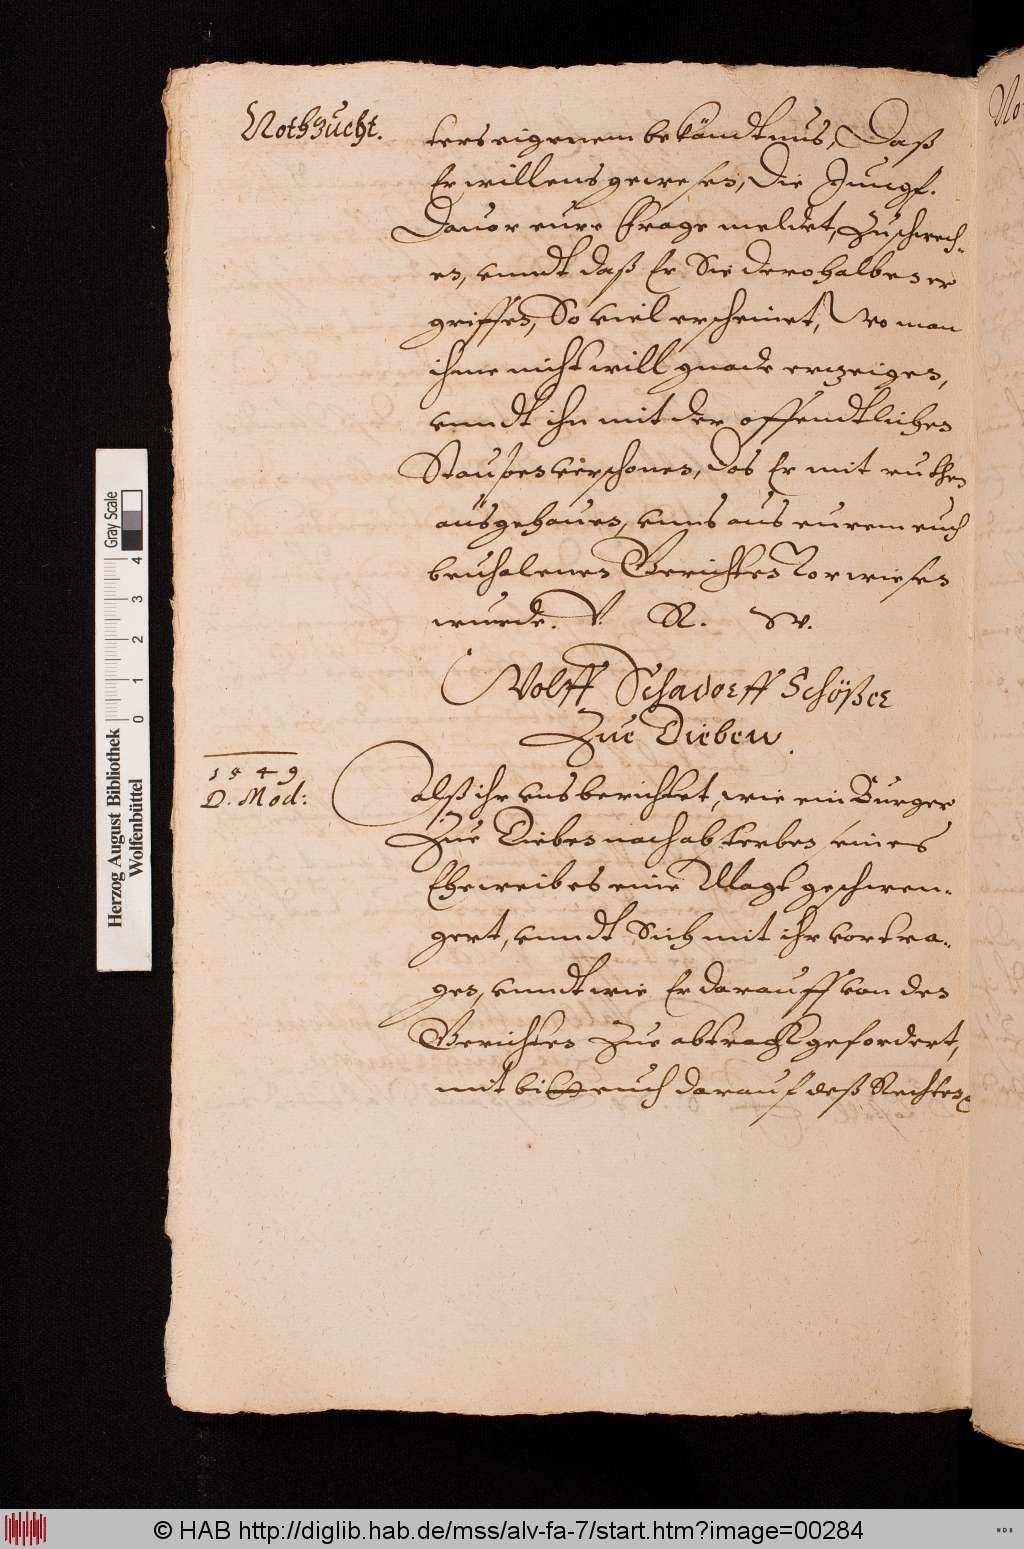 Nothzucht.
ters eigenem bekändtnus, Daß
Er willens gewesen, die Jungf.
Davor eure Frage meldet, Zuschwech-
en, vnndt daß Er Sie derohalben er
griffen, So viel erscheinet, Wo man
ihme nicht will gnade erzeigen,
vnndt ihn mit der offendtlichen
Staupen verschonen, das Er mit ruthen
ausgehauen, vnns aus eurem euch
beuholenen Gerichten vorwiesen
wurde. V. R. W.
Wolff Schadorff Schößer
Zue Dieben.
1549
D. Mod:
Alß ihr vns berichtet, wie ein Burger
Zue Dieben nach absterben seines
Eheweibes eine Magt geschwen-
gert, vnndt Sich mit ihr vortra-
gen, vnndt wie Er darauff von den
Gerichten Zue abtracht gefordert,
mit bitt euch darauf deß Rechten
Herzog August Bibliothek
Wolfenbüttel
0 1 2 3 4
Gray Scale
© HAB http://diglib.hab.de/mss/alv-fa-7/start.htm?image=00284